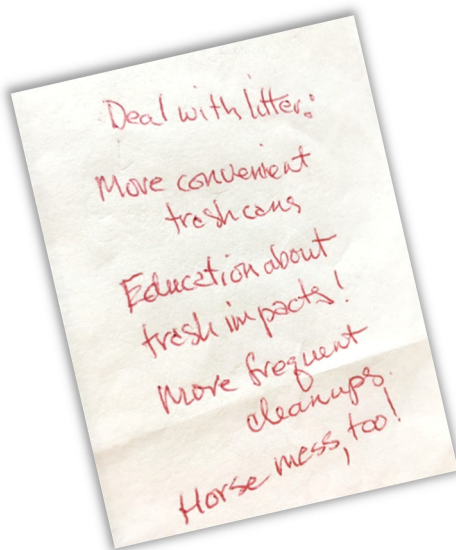 Deal with litter:
More convenient
trash cans
Education about
trash impacts!
More frequent
cleanups.
Horse mess, too!